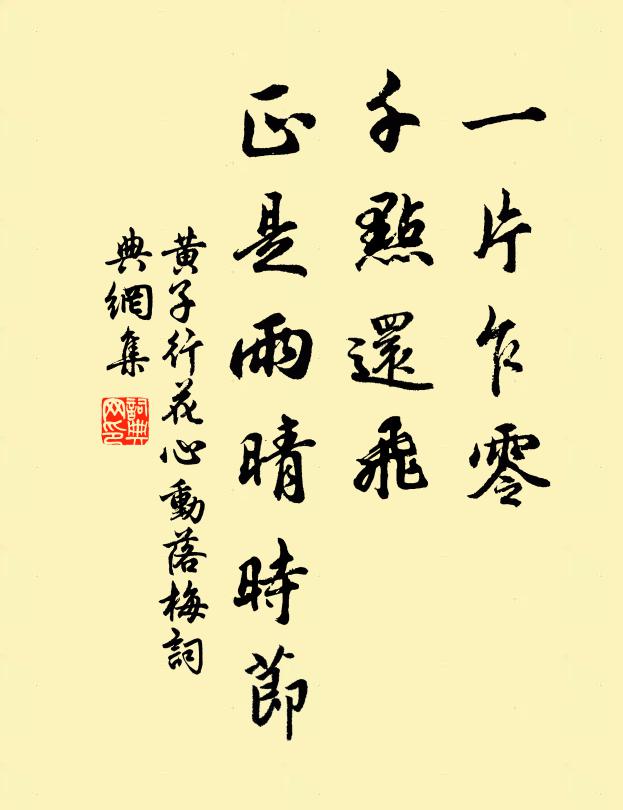 一片乍零
千點還飛
正是雨晴時節
黃子行花心動落梅詞
典網集
詞典
网印